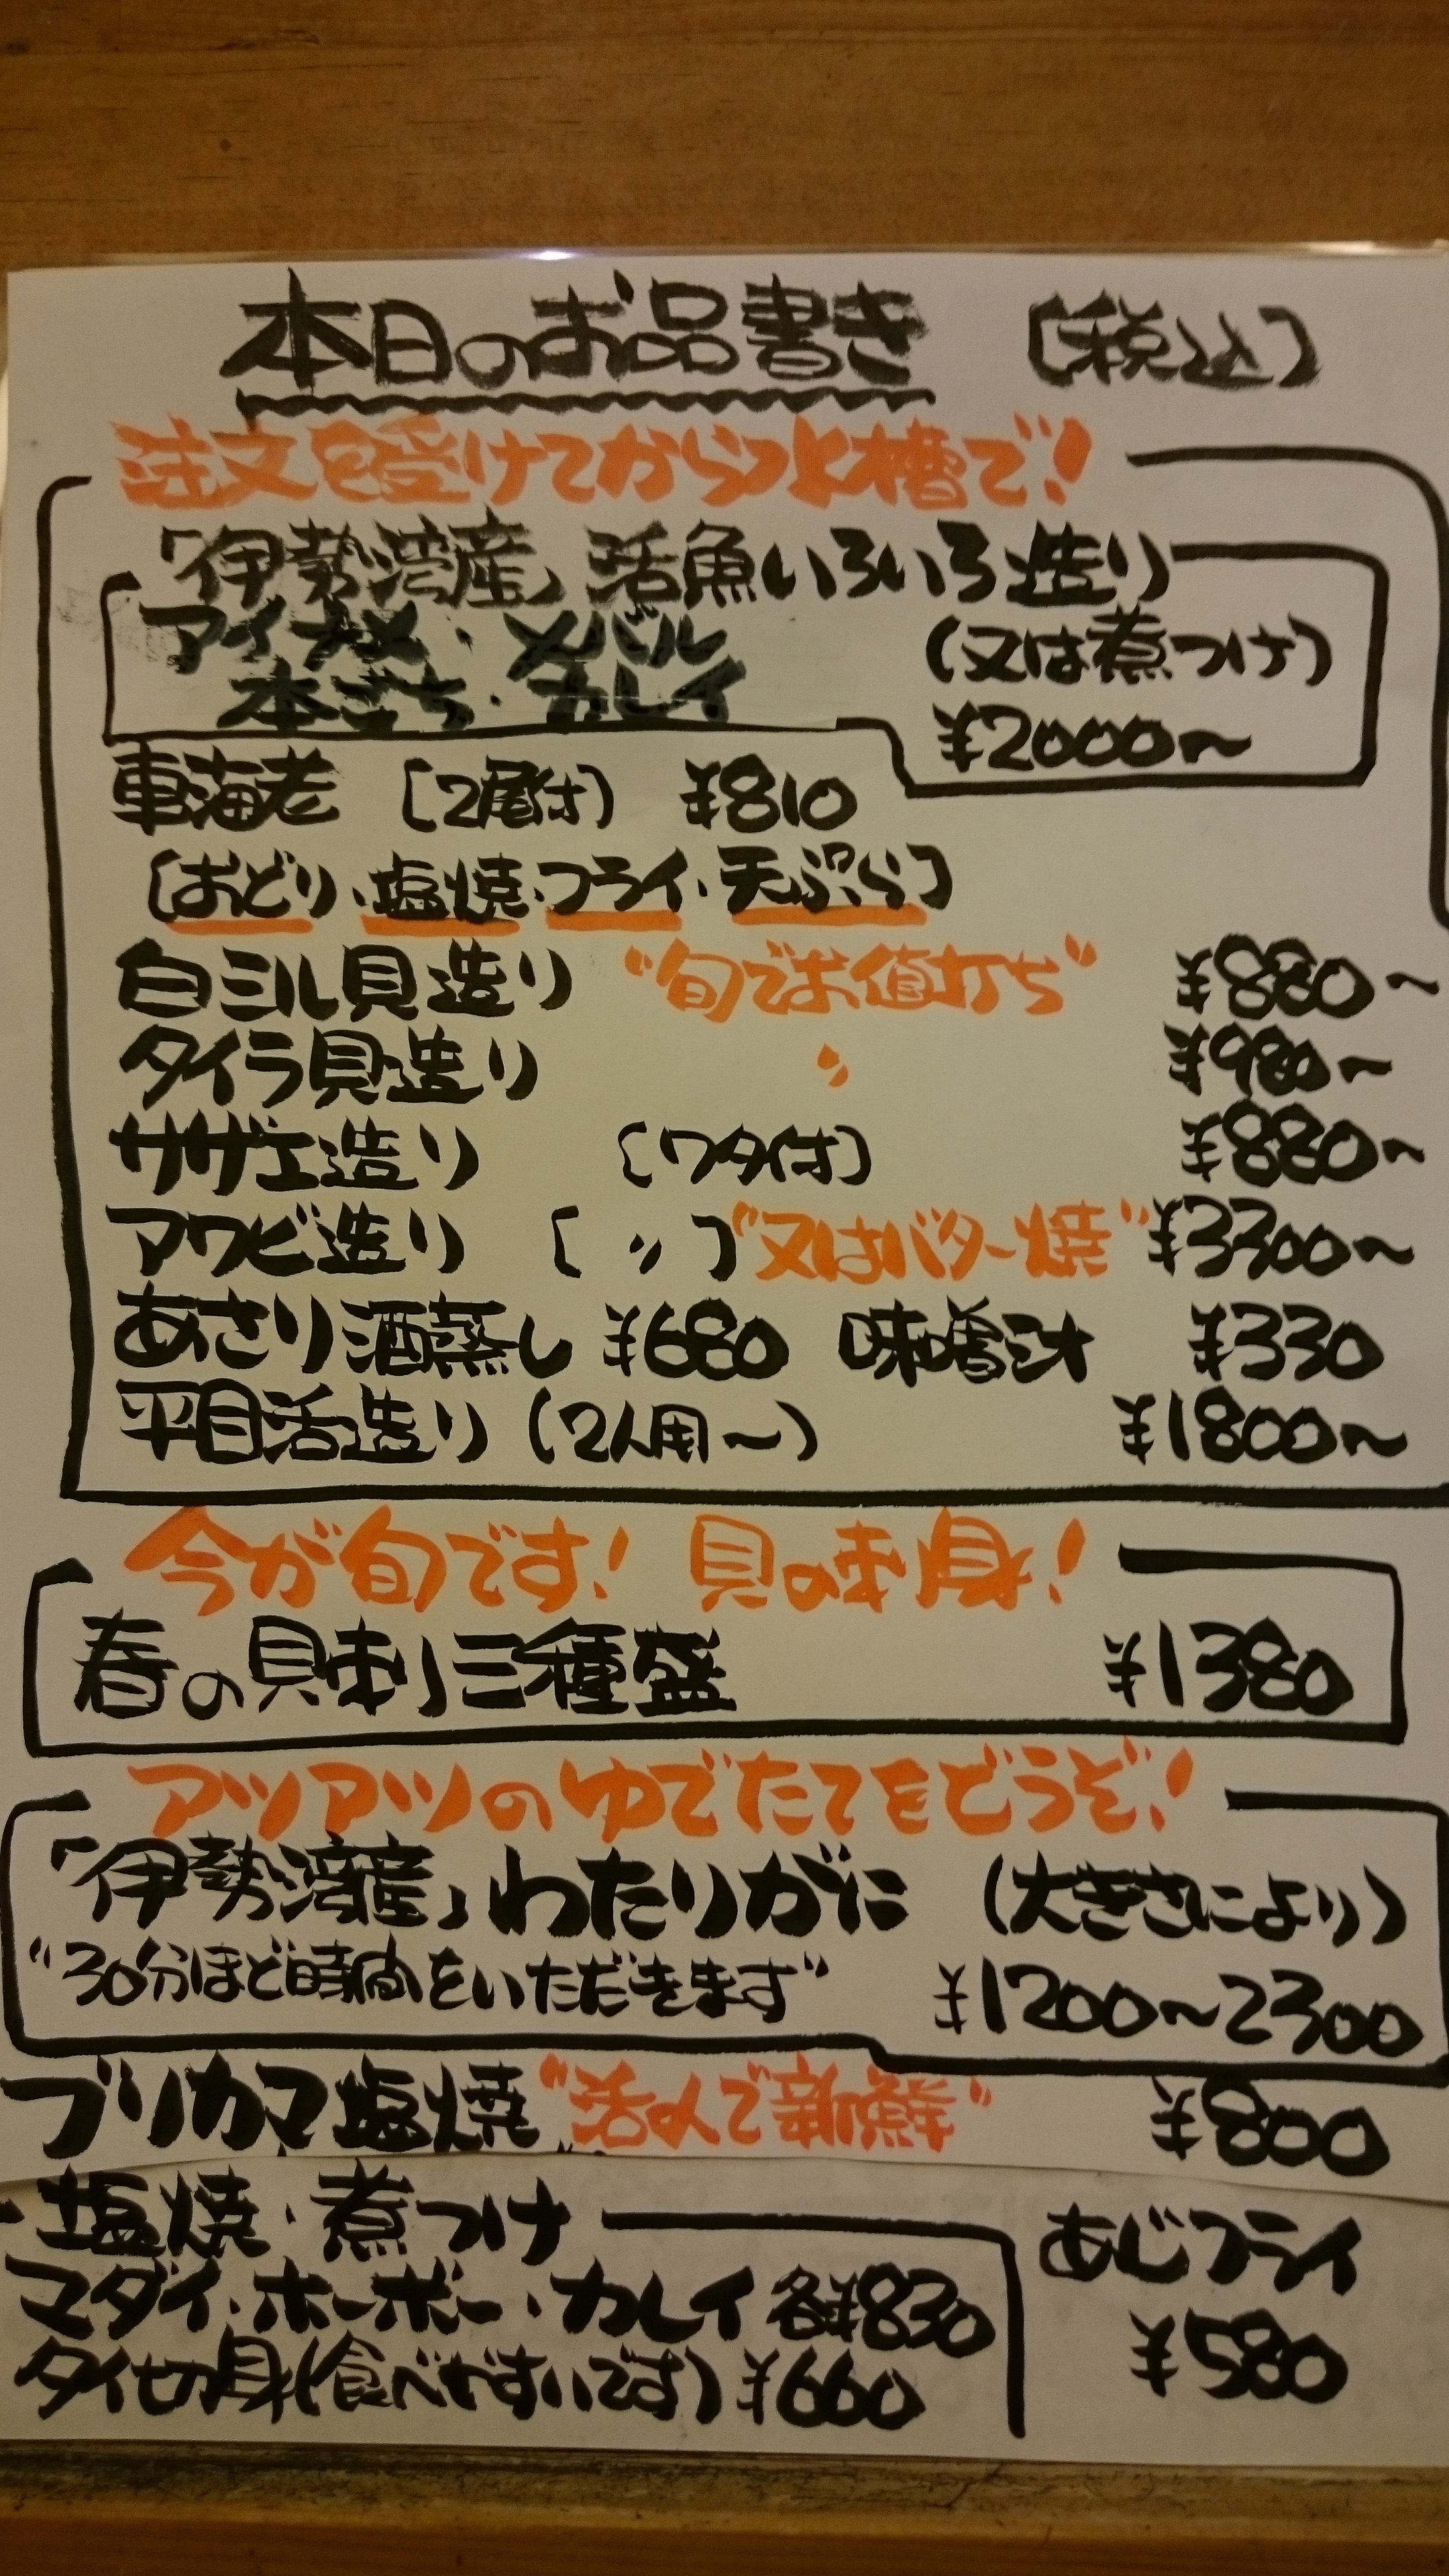 本日のお品書き [税込]
注文を受けてから水槽で!
「伊勢湾産」活魚いろいろ造り
アイナメ・メバル (又は煮つけ)
本ごち・カレイ ¥2000〜
車海老 [2尾付] ¥810
[おどり・塩焼・フライ・天ぷら]
白ミル貝造り "旬でお値打ち" ¥880〜
タイラ貝造り 〃 ¥980〜
サザエ造り [ワタ付] ¥880〜
アワビ造り [〃] "又はバター焼" ¥3300〜
あさり酒蒸し ¥680 味噌汁 ¥330
平目活造り (2人用〜) ¥1800〜
今が旬です! 貝の刺身!
春の貝刺三種盛 ¥1380
アツアツのゆでたてをどうぞ!
「伊勢湾産」わたりがに (大きさにより)
"30分ほど時間をいただきます" ¥1200〜2300
ブリカマ塩焼 "活〆で新鮮" ¥800
・塩焼・煮つけ
マダイ・ホーボー・カレイ 各¥830
タイ切身(食べやすいです) ¥660
あじフライ
¥580